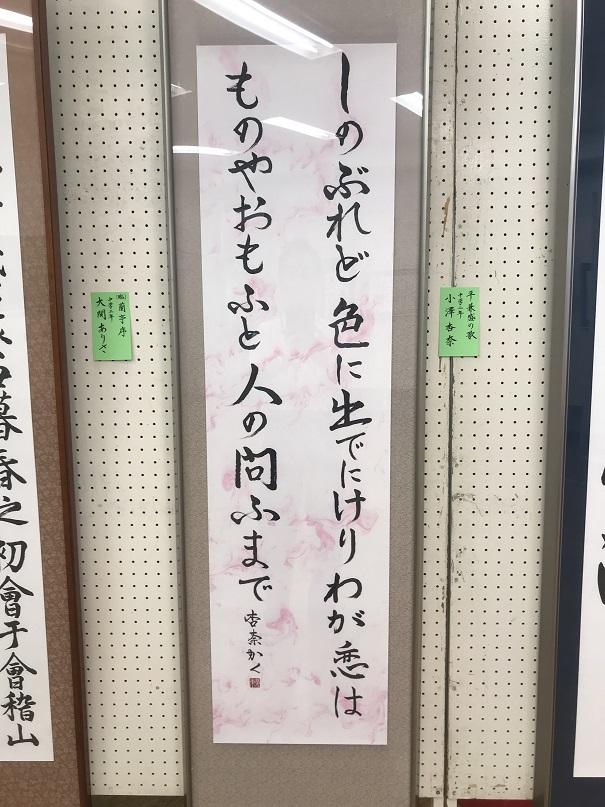 しのぶれど色に出でにけりわが恋は
ものやおもふと人の問ふまで
杏奈かく
平兼盛の歌
小澤 杏奈
蘭亭序
大関 ありさ
暮春之初會于會稽山